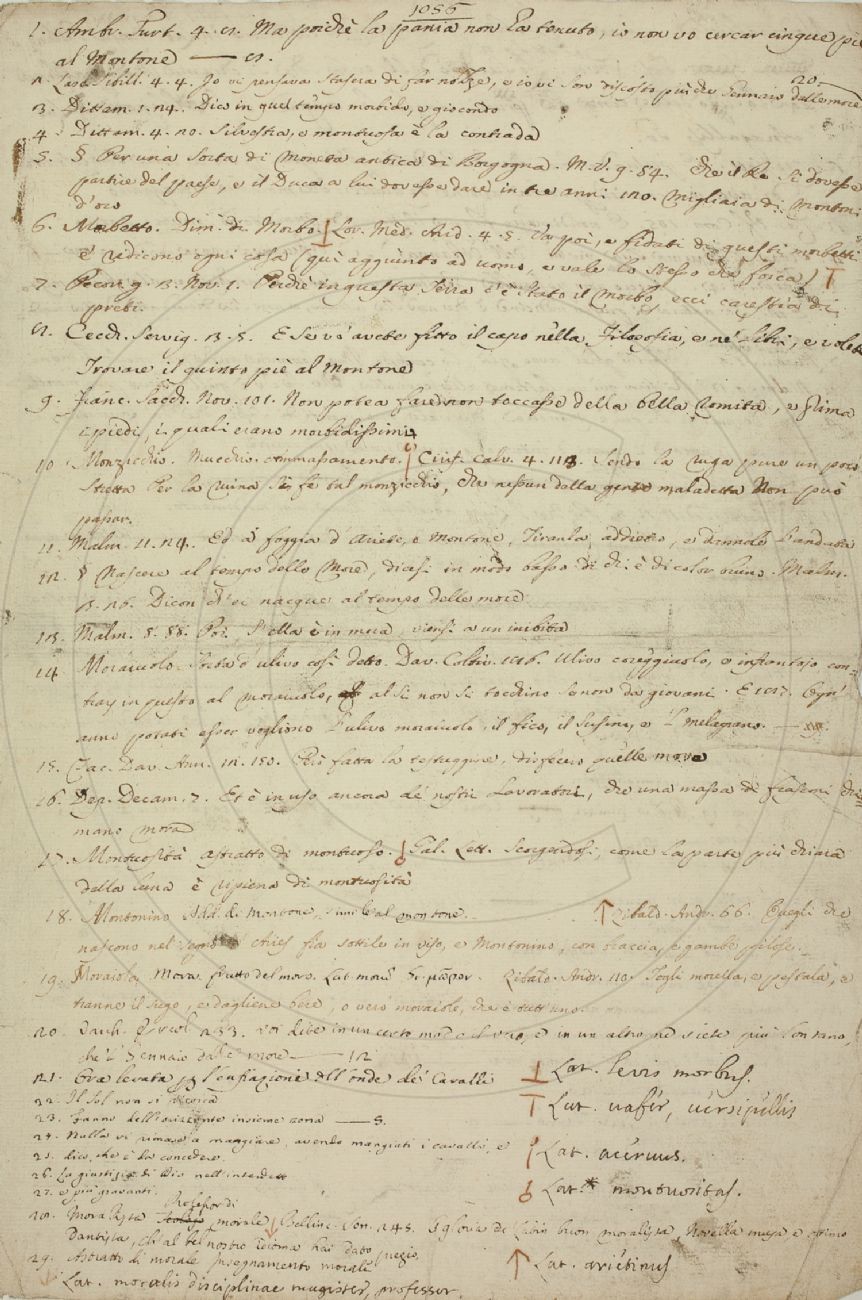 1056
1. Ambr. Furt. 4. 8. Ma poichè la pania non ha tenuto, io non vo cercar cinque piè
al Montone — 8.
2. Lasc. Sibill. 4. 4. Io vi pensava stasera di far nozze, e io vi son discosto più che Gennaio dalle more
20
3. Dittam. 1. 24. Dico in quel tempo morbido, e giocondo
4. Dittam. 4. 20. Silvestra, e montuosa è la contrada
5. § Per una sorta di Moneta antica di Borgogna. M. V. 9. 84. Che il Re si dovesse
partire del paese, e il Duca a lui dovesse dare in tre anni 120. migliaia di Montoni
d'oro
6. Morbetto. Dim. di Morbo. Lor. Med. Arid. 4. 5. Va poi, e fidati di questi morbetti
e' ridicono ogni cosa (quì aggiunto ad uomo, e vale lo stesso che forca)
7. Pecor. g. 13. Nov. 1. Perchè in questa terra c'è stato il Morbo, ecci carestia di
preti.
8. Cecch. Servig. 3. 5. E se vo' avete fitto il capo nella Filosofia, e ne' libri, e volete
Trovare il quinto piè al Montone
9. Franc. Sacch. Nov. 101. Non potea fare non toccasse della bella Romita, e prima
i piedi, i quali erano morbidissimi
10. Monzicchio. Mucchio. ammassamento. Ciriff. Calv. 4. 113. Sendo la ruga pure un poco
stretta Per la ruina si fe tal monzicchio, che nessun della gente maladetta Non può
passar.
11. Malm. 11. 24. Ed a foggia d'Ariete, e Montone, Tirarla addietro, e dannole l'andata
12. § Nascere al tempo delle More, dicesi in modo basso di chi è di color bruno. Malm.
3. 26. Dicon ch'ei nacque al tempo delle more
13. Malm. 8. 58. Poi, Stella è in mora, viensi a un inibita
14. Moraiuolo. Sorta d'ulivo così detto. Dav. Coltiv. 186. Ulivo coreggiuolo, e infrantojo con-
tray in questo al moraiuolo, al sì non si tocchino se non da giovani. E 187. Ogn'
anno potati esser vogliono l'ulivo moraiuolo, il fico, il susino, e 'l melagrano.
15. Tac. Dav. Ann. 12. 150. Però fatta la testuggine, disfecero quelle more
16. Dep. Decam. 7. Et è in uso ancora de' nostri Lavoratori, che una massa di frasconi chia
mano mora
17. Montuosità astratto di montuoso. Gal. Lett. Scorgendosi, come la parte più chiara
della luna è ripiena di montuosità
18. Montonino Add. di montone, simile al montone. Ribald. Andr. 66. Quegli che
nascono nel segno Aries fia sottile in viso, e Montonino, con braccia, e gambe pilose.
19. Moraiola, Mora, frutto del moro. Lat. morũ Gr. μῶρον. Ribald. Andr. 110. Togli morella, e pestala, e
tranne il sugo, e dagliene bere, o vero moraiole, che è tutt'uno
20. Varch. Ercol. 233. Voi dite in un certo modo il vero, e in un altro, ne siete più lontano,
che 'l Gennaio dalle more — 12
21. Ora levata l'enfiagione dell'onde de' Cavalli
22. Il Sol non si vicoia
23. Fanno dell'orizzonte insieme zona — 5.
24. Nulla vi rimase a mangiare, avendo mangiati i cavalli, e
25. dico, che è da concedere.
26. La giustizia di Dio nell'intendett
27. e più gravanti.
28. Moralista Professor di morale. Bellin. Son. 248. E gloria de' Libri buon moralista, Novella musa e ottimo
Dantista, ch'al bel nostro idioma hai dato pregio
29. Astratto di morale insegnamento morale
Lat. moralis disciplinae magister, professor.
Lat. levis morbus.
Lat. vafer, versipellis
Lat. acervus.
Lat. montuositas.
Lat. arietinus